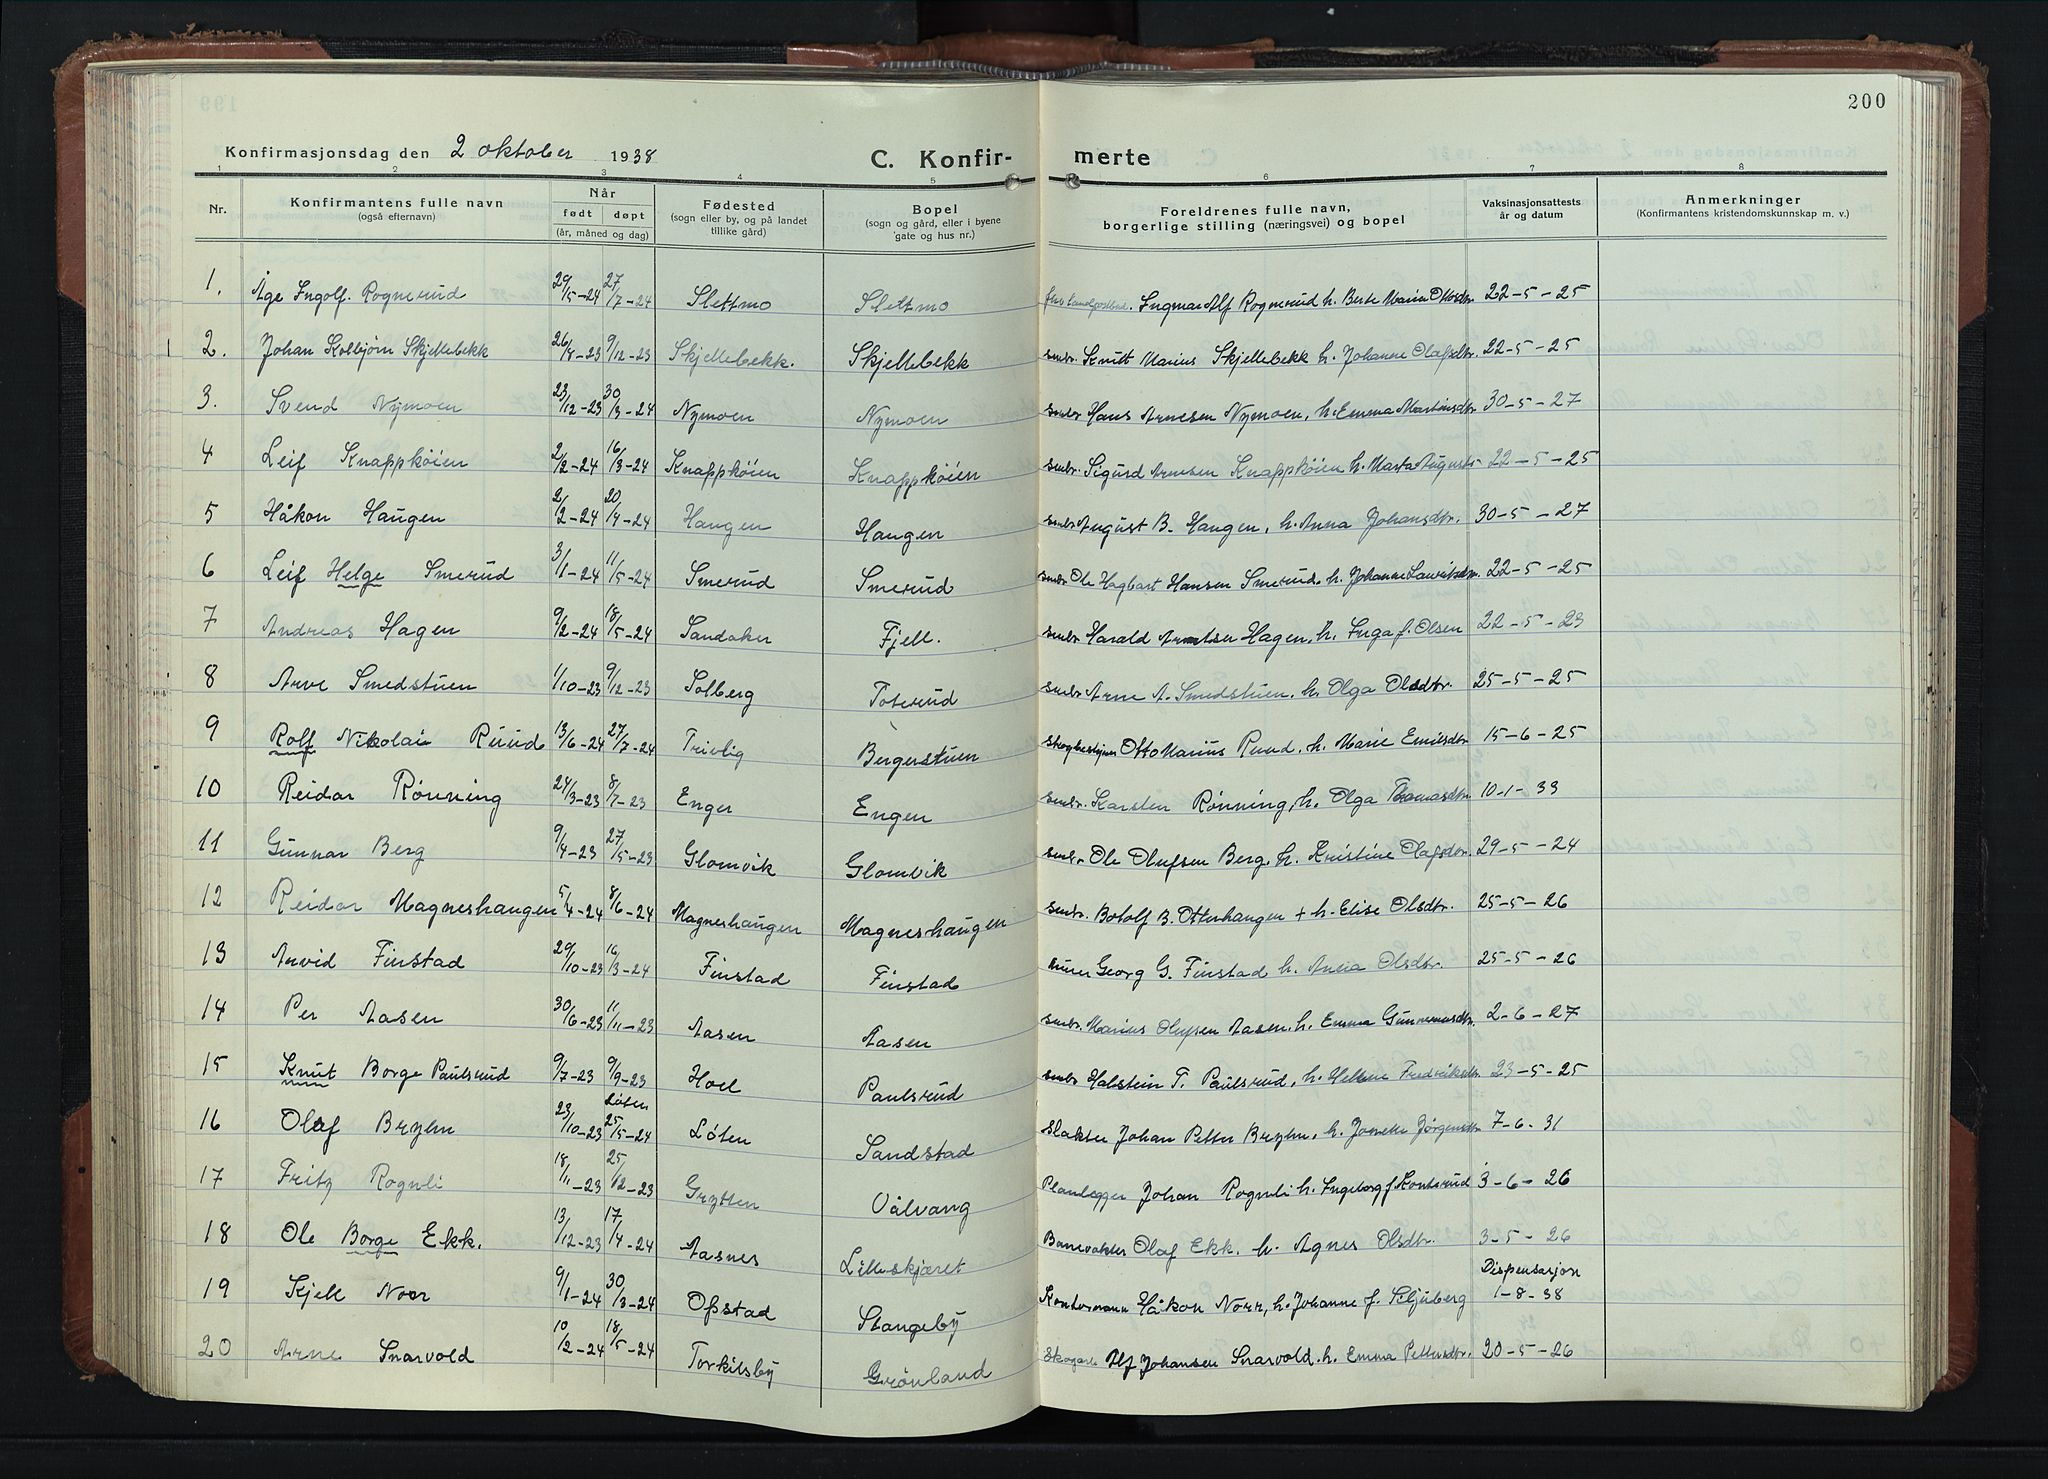 200
Konfirmasjonsdag den 2 oktober 1938
C. Konfir- merte
1 2 3 4 5 6 7 8
Nr.
Konfirmantens fulle navn
(også efternavn)
Når
født døpt
(år, måned og dag)
Fødested
(sogn eller by, og på landet
tillike gård)
Bopel
(sogn og gård, eller i byene
gate og hus nr.)
Foreldrenes fulle navn,
borgerlige stilling (næringsvei) og bopel
Vaksinasjonsattests
år og datum
Anmerkninger
(Konfirmantens kristendomskunnskap m. v.)
1. Åge Ingolf Rognerud 29/5-24 27/7-24 Slettmo Slettmo Ingmar Alf Rognerud h. Berte Marie Olsdtr. 22-5-25
2. Johan Kolbjørn Skjellebekk 26/4-23 9/12-23 Skjellebekk. Skjellebekk smbr. Knutt Marius Skjellebekk h. Johanne Olafsdtr. 22-5-25
3. Svend Nymoen 23/12-23 30/3-24 Nymoen Nymoen smbr Hans Arnesen Nymoen, h. Emma Martinsdtr 30-5-27
4 Leif Knappkøien 2/2-24 16/3-24 Knappkøien Knappkøien smbr. Sigurd Arnesen Knappkøien h. Marta 22-5-25
5 Håkon Haugen 2/2-24 20/4-24 Haugen Haugen smbr August B. Haugen, h. Anna Johansdtr. 30-5-27
6 Leif Helge Smerud 3/1-24 11/5-24 Smerud Smerud smbr Ole Hagbart Hansen Smerud, h. Johanne Lauritsdtr. 22-5-25
7 Andreas Hagen 9/2-24 18/5-24 Sandaker Fjell. smbr Harald Arntsen Hagen, h. Inga f. Olsen 22-5-23
8 Arve Smedstuen 1/10-23 9/12-23 Solberg Toterud smbr Arne A. Smedstuen, h. Olga Olsdtr. 25-5-25
9 Rolf Nikolai Ruud 13/6-24 27/7-24 Trivlig Bergerstuen Otto Marius Ruud, h. Marie Emilsdtr 15-6-25
10 Reidar Rønning 24/3-23 8/7-23 Enger Engen smbr. Karsten Rønning, h. Olga Thomasdtr. 10-1-33
11 Gunnar Berg 9/4-23 27/5-23 Glomvik Glomvik smbr Ole Olufsen Berg, h. Kristine Olafsdtr. 29-5-24
12 Reidar Magneshaugen 5/4-24 8/6-24 Magneshaugen Magneshaugen smbr. Botolf B. Otterhaugen + h. Elise Olsdtr. 25-5-26
13 Arvid Finstad 29/10-23 16/3-24 Finstad Finstad Georg G. Finstad h. Anna Olsdtr. 25-5-26
14 Per Aasen 30/6-23 11/11-23 Aasen Aasen smbr. Marius Olufsen Aasen, h. Emma Gunnerusdtr. 2-6-27
15 Knut Borge Paulsrud 9/7-23 9/9-23 Hoel Paulsrud smbr Halstein T. Paulsrud, h. Helene Fredriksdtr. 23-5-25
16 Olaf Bryhn 23/10-23 Løten 25/5-24 Løten Sandstad slakter Johan Petter Bryhn, h. Josette Jørgensdtr 7-6-31
17 Fritz Rognli 18/11-23 25/12-23 Grytten Vålvang Planlegger Johan Rognli h. Ingeborg f. Kontsrud 3-6-26
18 Ole Borge Ekk. 13/12-23 17/4-24 Aasnes Lilleskjæret Banevokter Olaf Ekk. h. Agnes Olsdtr. 3-5-26
19 Kjell Norr 9/1-24 30/3-24 Opstad Stangeby Kontormann Håkon Norr, h. Johanne f. Seljuberg Dispensasjon 1-8-38
20 Arne Snarvold 10/2-24 18/5-24 Torkilsby Grønland Skogarb Alf Johansen Snarvold. h. Emma Pettersdtr. 20-5-26